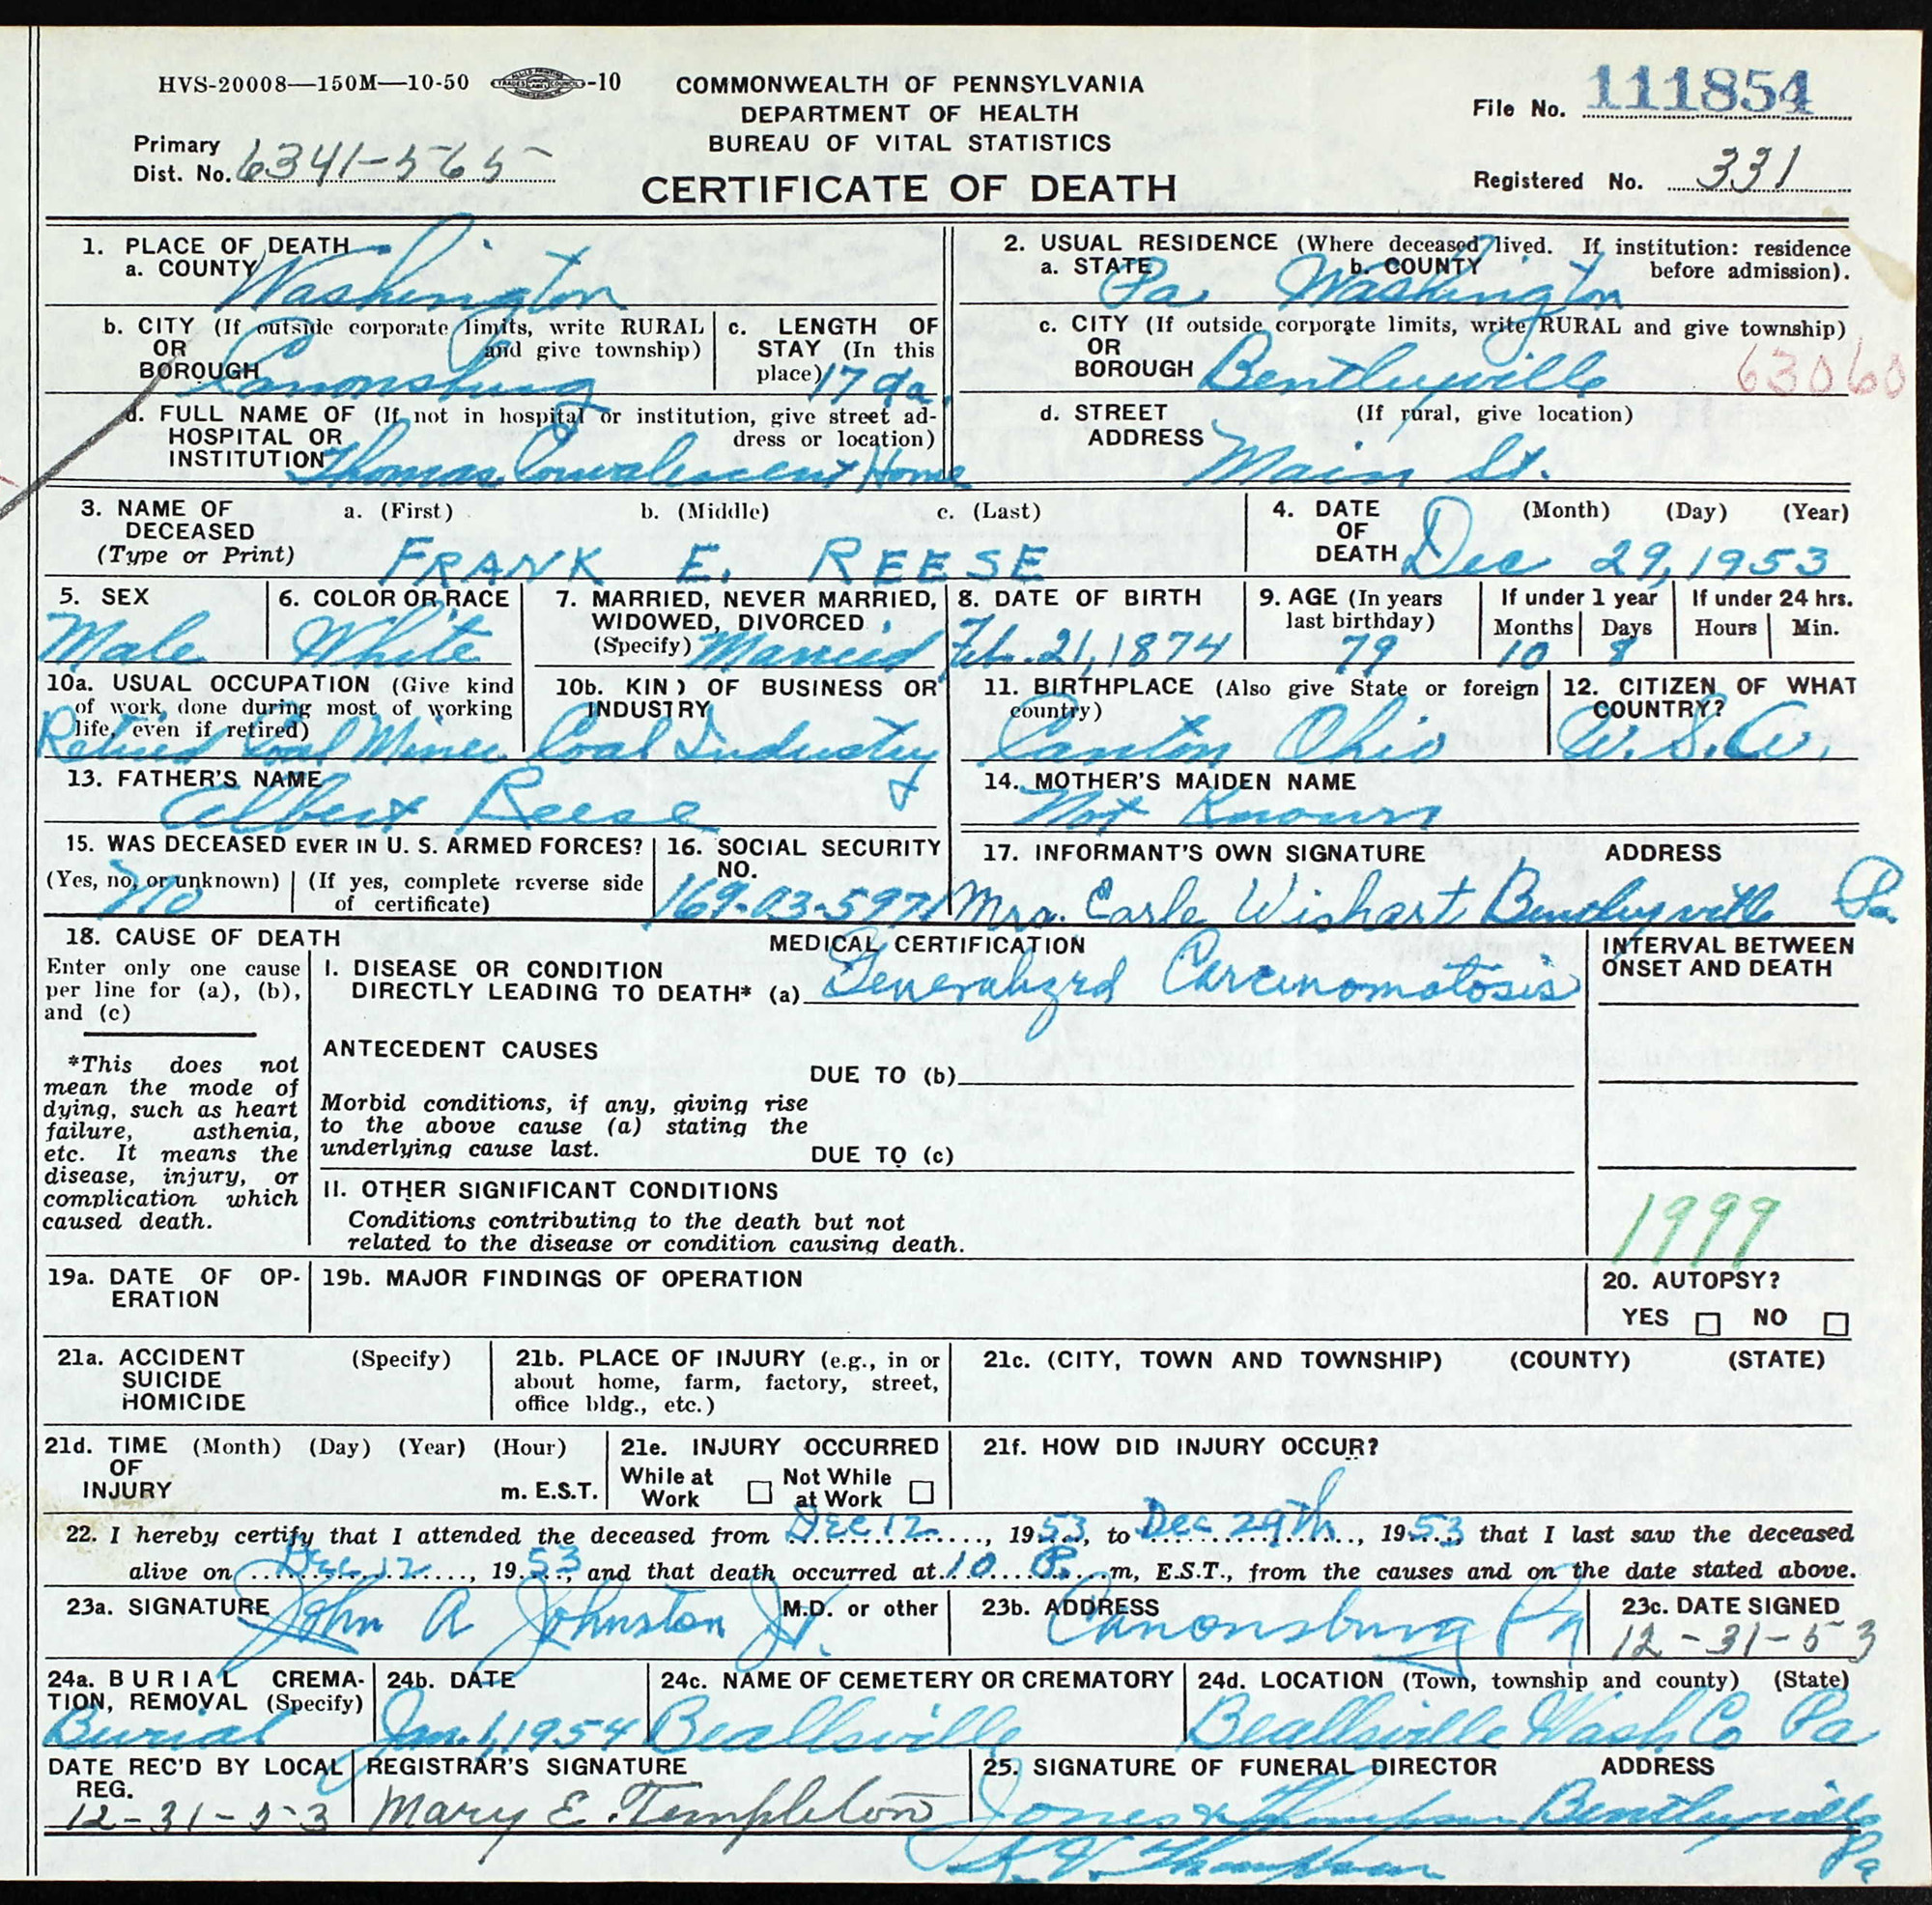 HVS-20008—150M—10-50 -10
COMMONWEALTH OF PENNSYLVANIA
DEPARTMENT OF HEALTH
BUREAU OF VITAL STATISTICS
CERTIFICATE OF DEATH
File No. 111854
Primary
Dist. No. 6341-565
Registered No. 331
1. PLACE OF DEATH
a. COUNTY Washington
2. USUAL RESIDENCE (Where deceased lived. If institution: residence
before admission).
a. STATE Pa b. COUNTY Washington
b. CITY (If outside corporate limits, write RURAL
OR and give township)
BOROUGH Canonsburg
c. LENGTH OF
STAY (In this
place) 17 da.
c. CITY (If outside corporate limits, write RURAL and give township)
OR
BOROUGH Bentleyville 63060
d. FULL NAME OF (If not in hospital or institution, give street ad-
HOSPITAL OR dress or location)
INSTITUTION Thomas Convalescent Home
d. STREET (If rural, give location)
ADDRESS Main St.
3. NAME OF a. (First) b. (Middle) c. (Last)
DECEASED
(Type or Print) FRANK E. REESE
4. DATE (Month) (Day) (Year)
OF
DEATH Dec 29, 1953
5. SEX
Male
6. COLOR OR RACE
White
7. MARRIED, NEVER MARRIED,
WIDOWED, DIVORCED
(Specify) Married
8. DATE OF BIRTH
Feb. 21, 1874
9. AGE (In years
last birthday)
79
If under 1 year
Months Days
10 8
If under 24 hrs.
Hours Min.
10a. USUAL OCCUPATION (Give kind
of work done during most of working
life, even if retired)
Retired Coal Miner
10b. KIND OF BUSINESS OR
INDUSTRY
Coal Industry
11. BIRTHPLACE (Also give State or foreign
country)
Canton Ohio
12. CITIZEN OF WHAT
COUNTRY?
U.S.A.
13. FATHER'S NAME
Albert Reese
14. MOTHER'S MAIDEN NAME
Not Known
15. WAS DECEASED EVER IN U. S. ARMED FORCES?
(Yes, no, or unknown) (If yes, complete reverse side
of certificate)
No
16. SOCIAL SECURITY
NO.
169-03-5971
17. INFORMANT'S OWN SIGNATURE ADDRESS
Mrs. Earle Wishart Bentleyville Pa.
18. CAUSE OF DEATH
Enter only one cause
per line for (a), (b),
and (c)
*This does not
mean the mode of
dying, such as heart
failure, asthenia,
etc. It means the
disease, injury, or
complication which
caused death.
MEDICAL CERTIFICATION
I. DISEASE OR CONDITION
DIRECTLY LEADING TO DEATH* (a) Generalized Carcinomatosis
ANTECEDENT CAUSES
DUE TO (b)
Morbid conditions, if any, giving rise
to the above cause (a) stating the
underlying cause last.
DUE TO (c)
II. OTHER SIGNIFICANT CONDITIONS
Conditions contributing to the death but not
related to the disease or condition causing death.
INTERVAL BETWEEN
ONSET AND DEATH
1999
19a. DATE OF OP-
ERATION
19b. MAJOR FINDINGS OF OPERATION
20. AUTOPSY?
YES NO
21a. ACCIDENT (Specify)
SUICIDE
HOMICIDE
21b. PLACE OF INJURY (e.g., in or
about home, farm, factory, street,
office bldg., etc.)
21c. (CITY, TOWN AND TOWNSHIP) (COUNTY) (STATE)
21d. TIME (Month) (Day) (Year) (Hour)
OF
INJURY m. E.S.T.
21e. INJURY OCCURRED
While at Not While
Work at Work
21f. HOW DID INJURY OCCUR?
22. I hereby certify that I attended the deceased from Dec 12, 1953, to Dec 29th, 1953 that I last saw the deceased
alive on Dec 12, 1953, and that death occurred at 10 P.m, E.S.T., from the causes and on the date stated above.
23a. SIGNATURE M.D. or other
John A Johnston Jr.
23b. ADDRESS
Canonsburg Pa
23c. DATE SIGNED
12-31-53
24a. BURIAL CREMA-
TION, REMOVAL (Specify)
Burial
24b. DATE
Jan. 1, 1954
24c. NAME OF CEMETERY OR CREMATORY
Beallsville
24d. LOCATION (Town, township and county) (State)
Beallsville Wash. Co Pa
DATE REC'D BY LOCAL
REG.
12-31-53
REGISTRAR'S SIGNATURE
Mary E. Templeton
25. SIGNATURE OF FUNERAL DIRECTOR ADDRESS
Jones & Thompson Bentleyville
Thompson Pa